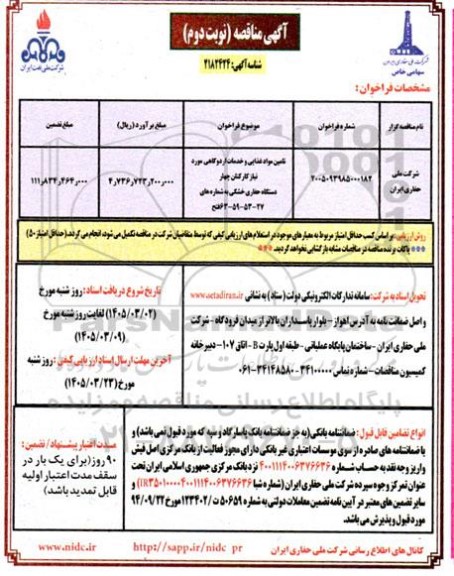 آگهی مناقصه (نوبت دوم)
شناسه آگهی: ۲۱۸۲۴۲۴
شرکت ملی نفت ایران
سهامی خاص
مشخصات فراخوان:
نام مناقصه گزار
شماره فراخوان
موضوع فراخوان
مبلغ برآورد (ریال)
مبلغ تضمین
شرکت ملی حفاری ایران
۲۰۰۵۰۹۳۹۸۵۰۰۰۱۸۲
تامین مواد غذایی و خدمات اردوگاهی مورد
نیاز کارکنان چهار
دستگاه حفاری خشکی به شماره های
۲۷-۵۳-۵۹-۶۳فتح
۴,۷۳۶,۷۲۳,۲۰۰,۰۰۰
۱۱۱,۸۳۴,۴۶۴,۰۰۰
روش ارزیابی: براساس کسب حداقل امتیاز مربوط به معیارهای موجود در استعلام های ارزیابی کیفی که توسط متقاضیان شرکت در مناقصه تکمیل می شود، انجام می گردد. (حداقل امتیاز ۵۰)
*** پاکات برنده مناقصه در مناقصات مشابه بازگشایی نخواهد گردید. ***
تحویل اسناد به شرکت: سامانه تدارکات الکترونیکی دولت (ستاد) به نشانی www.setadiran.ir
و اصل ضمانت نامه به آدرس اهواز - بلوار پاسداران بالاتر از میدان فرودگاه - شرکت
ملی حفاری ایران - ساختمان پایگاه عملیاتی - طبقه اول پارت B - اتاق ۱۰۷ - دبیرخانه
کمیسیون مناقصات - شماره تماس ۳۴۱۰۰۰۰۰ - ۳۴۱۴۸۵۸۰-۰۶۱
تاریخ شروع دریافت اسناد: روز شنبه مورخ
(۱۴۰۵/۰۳/۰۲) لغایت روز شنبه مورخ
(۱۴۰۵/۰۳/۰۹)
آخرین مهلت ارسال اسناد ارزیابی کیفی: روز شنبه
مورخ (۱۴۰۵/۰۳/۲۳)
انواع تضامین قابل قبول: ضمانتنامه بانکی (به جز ضمانتنامه بانک پاسارگاد و سپه که مورد قبول نمی باشد) و
یا ضمانتنامه های صادره از سوی موسسات اعتباری غیر بانکی دارای مجوز فعالیت از بانک مرکزی اصل فیش
واریز وجه نقد به حساب شماره ۴۰۰۱۱۱۴۰۰۶۳۷۶۶۳۶ نزد بانک مرکزی جمهوری اسلامی ایران تحت
عنوان تمرکز وجوه سپرده شرکت ملی حفاری ایران (شماره شبا
سایر تضمین های معتبر در آیین نامه تضمین معاملات دولتی به شماره ۵۰۶۵۹ ت/۱۲۳۴۰۲ مورخ ۹۴/۰۹/۲۲
مورد قبول و پذیرش می باشد.
مدت اعتبار پیشنهاد / تضمین:
۹۰ روز (برای یک بار در
سقف مدت اعتبار اولیه
قابل تمدید باشد)
کانال های اطلاع رسانی شرکت ملی حفاری ایران http://sapp.ir/nidc_pr www.nidc.ir